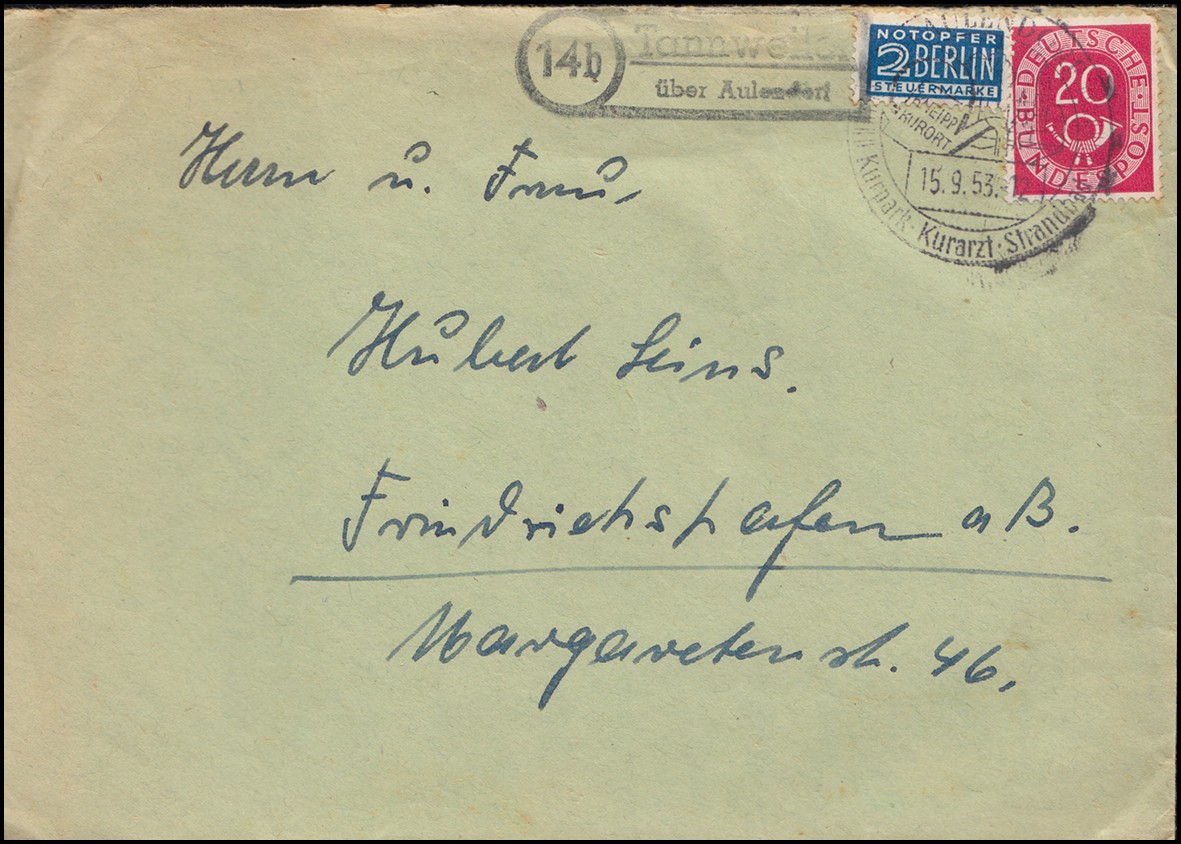 14b
Tannweiler
über Aulendorf
NOTOPFER
2 BERLIN
STEUERMARKE
DEUTSCHE · POST · BUNDESPOST
20
AULENDORF
KNEIPP
KURORT
15.9.53.
Kurpark · Kurarzt · Strandbad
Herrn u. Frau
Hubert Leins.
Friedrichshafen a B.
Margaretenstr. 46.